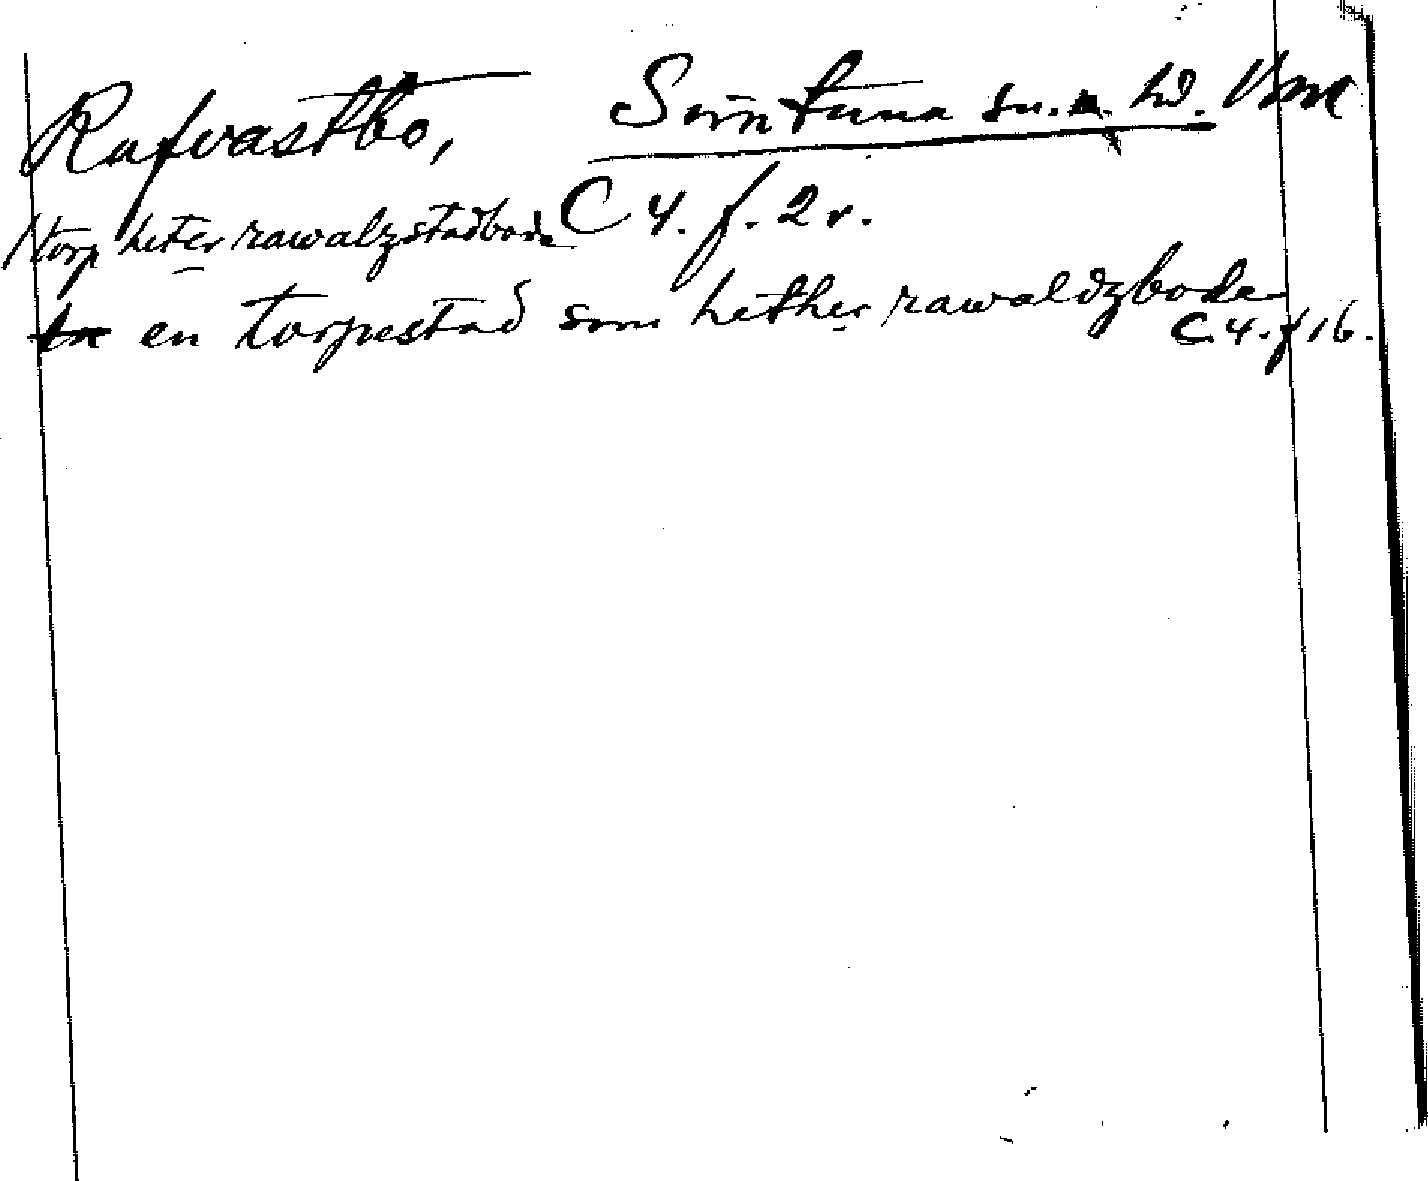 Rafvastbo, Simtuna sn. o. hd. Uml
1 torp heter rawalzstadboda C 4. f. 2 v.
en torpestad som hether rawaldzboda
C 4. f 16.